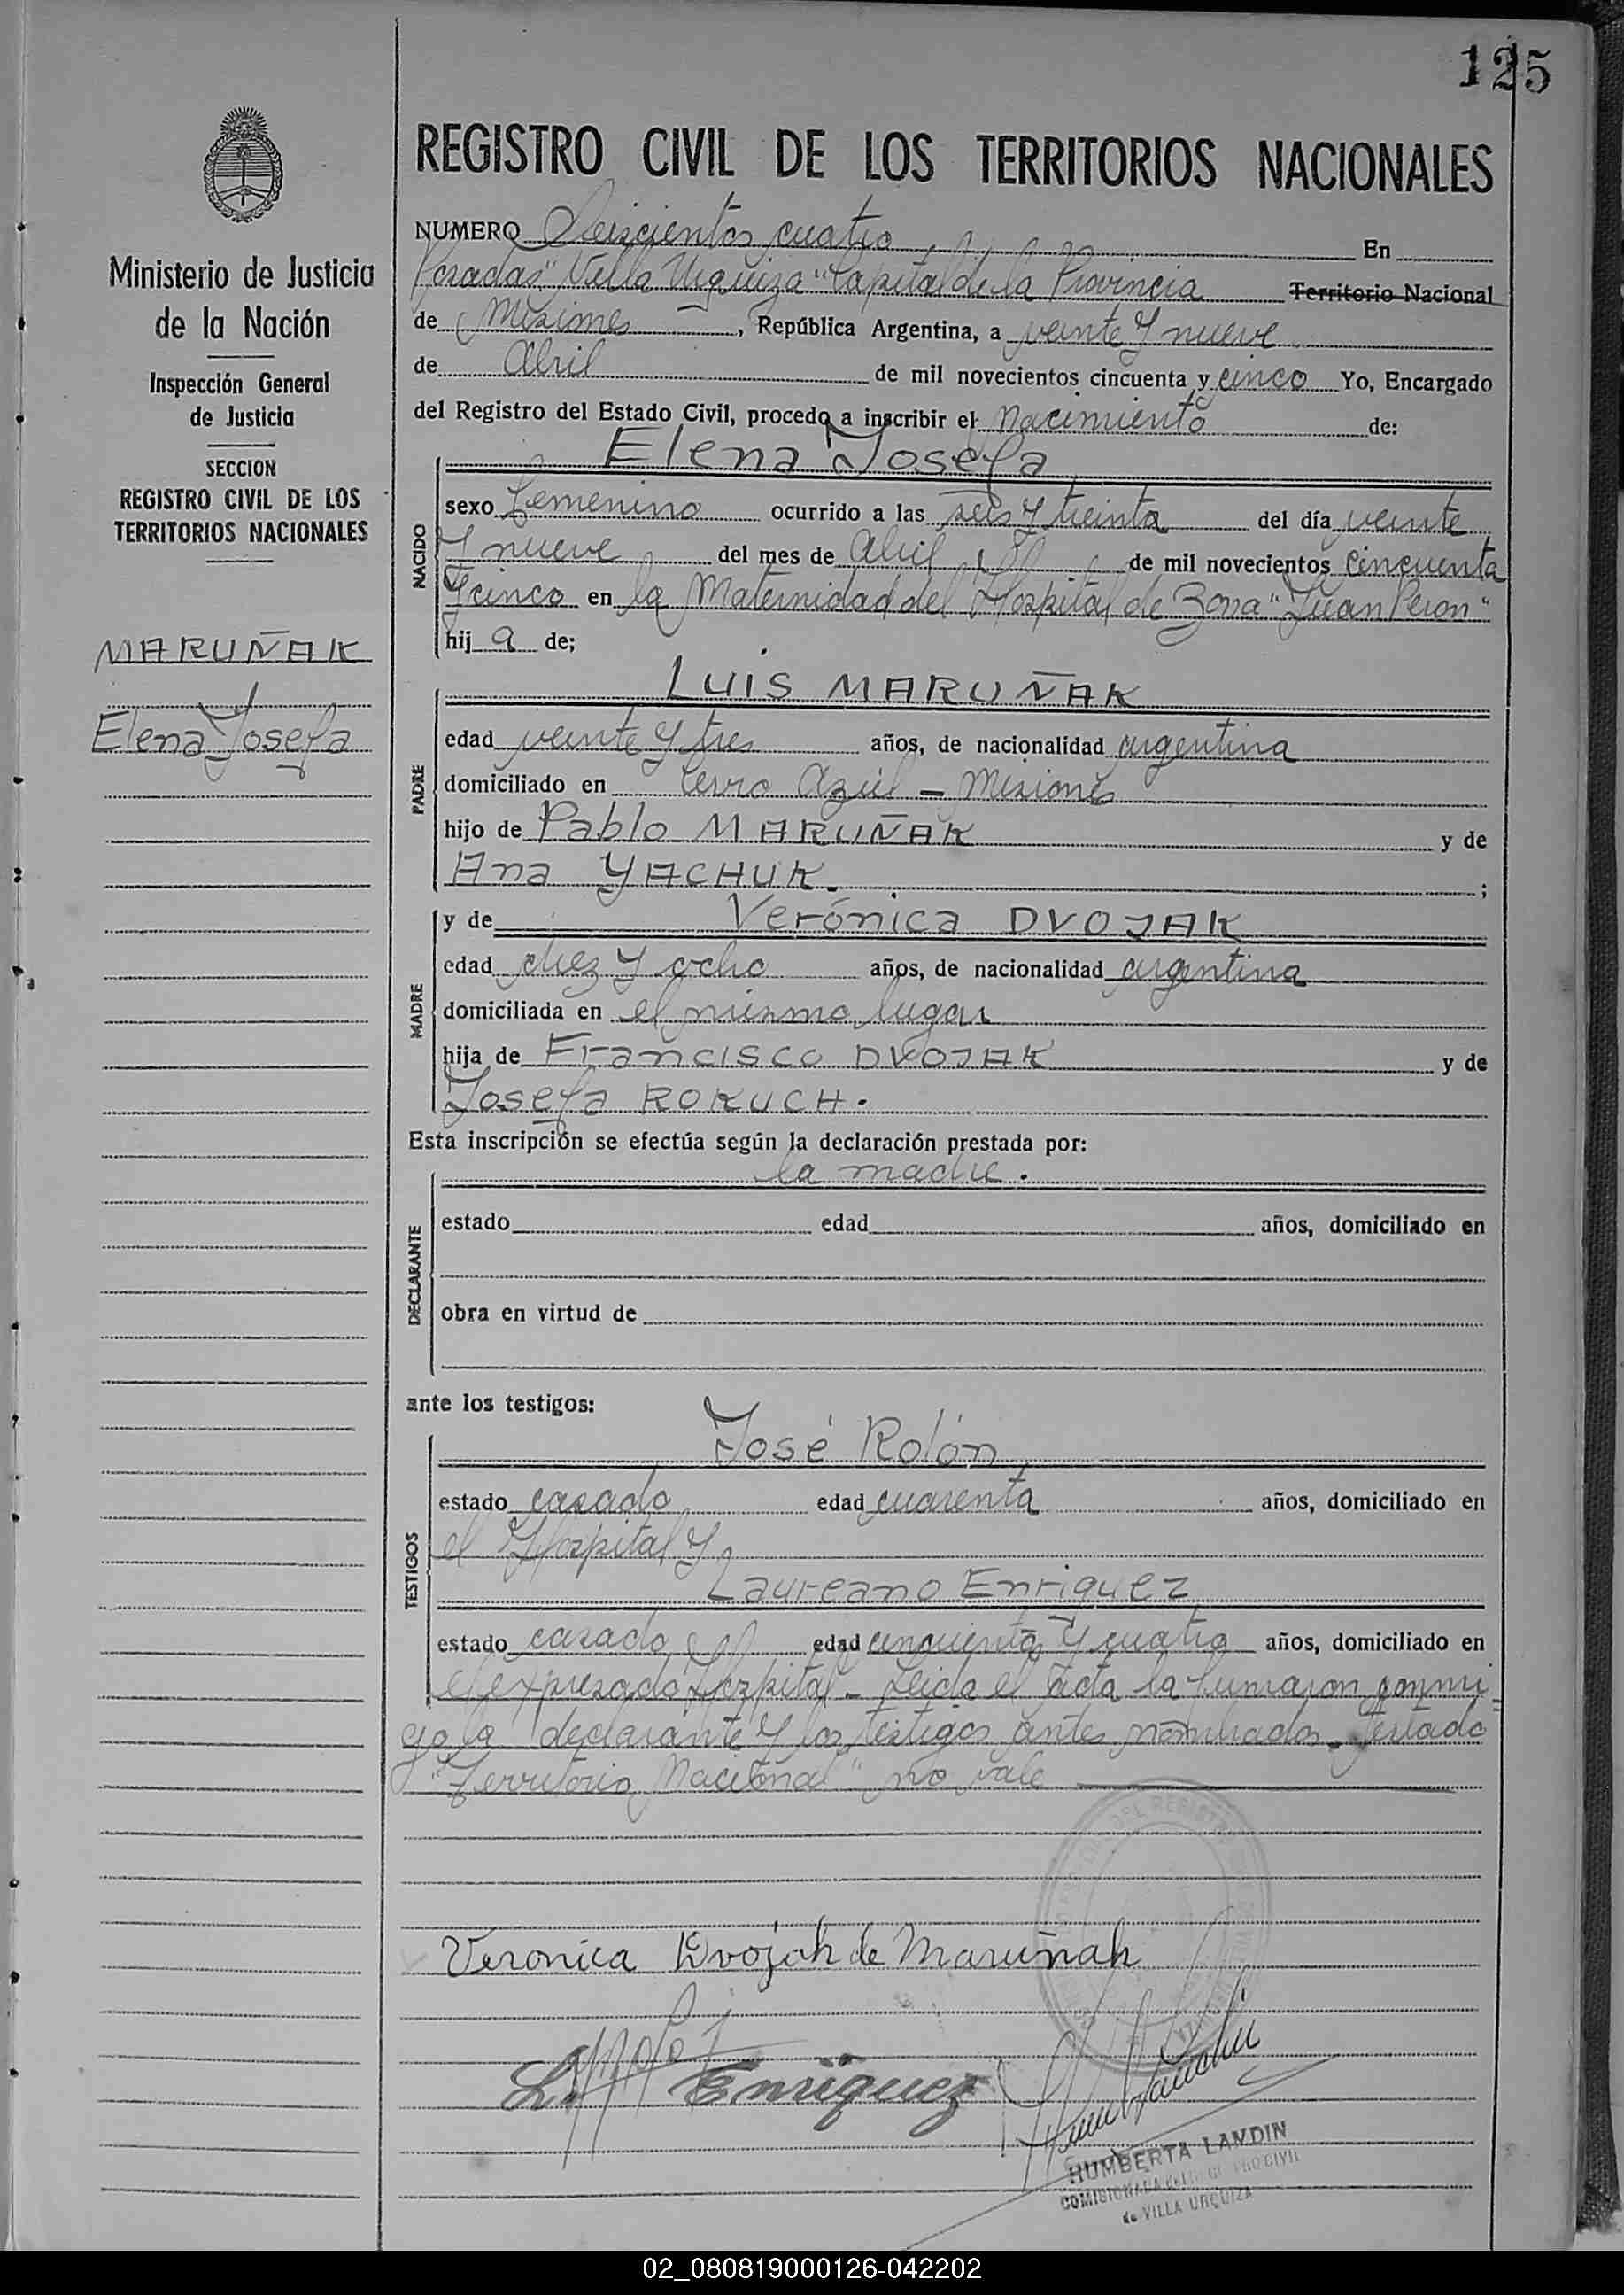 125
REGISTRO CIVIL DE LOS TERRITORIOS NACIONALES
Ministerio de Justicia
de la Nación
Inspección General
de Justicia
SECCION
REGISTRO CIVIL DE LOS
TERRITORIOS NACIONALES
MARUÑAK
Elena Josefa
NUMERO Seiscientos cuatro En
Posadas "Villa Urquiza" Capital de la Provincia Territorio Nacional
de Misiones, República Argentina, a veinte y nueve
de Abril de mil novecientos cincuenta y cinco Yo, Encargado
del Registro del Estado Civil, procedo a inscribir el nacimiento de:
NACIDO
Elena Josefa
sexo femenino ocurrido a las seis y treinta del día veinte
y nueve del mes de abril de mil novecientos cincuenta
y cinco en la Maternidad del Hospital de Zona "Juan Peron"
hij a de;
PADRE
LUIS MARUÑAK
edad veinte y tres años, de nacionalidad argentina
domiciliado en Cerro Azúl - Misiones
hijo de Pablo MARUÑAK y de
Ana YACHUK. ;
MADRE
y de Verónica DVOJAK
edad diez y ocho años, de nacionalidad argentina
domiciliada en el mismo lugar
hija de Francisco DVOJAK y de
Josefa ROKUCH.
Esta inscripción se efectúa según la declaración prestada por:
DECLARANTE
la madre.
estado edad años, domiciliado en
obra en virtud de
ante los testigos:
TESTIGOS
José Rolón
estado casado edad cuarenta años, domiciliado en
el Hospital y
Laureano Enriquez
estado casado edad cincuenta y cuatro años, domiciliado en
el expresado Hospital - Leida el acta la firmaron conmi-
go la declarante y los testigos antes nombrados - Testado
"Territorio Nacional" no vale
Veronica Dvojak de Maruñak
L. Enriquez
HUMBERTA LANDIN
COMISIONADA CIVIL
de VILLA URQUIZA
02_080819000126-042202